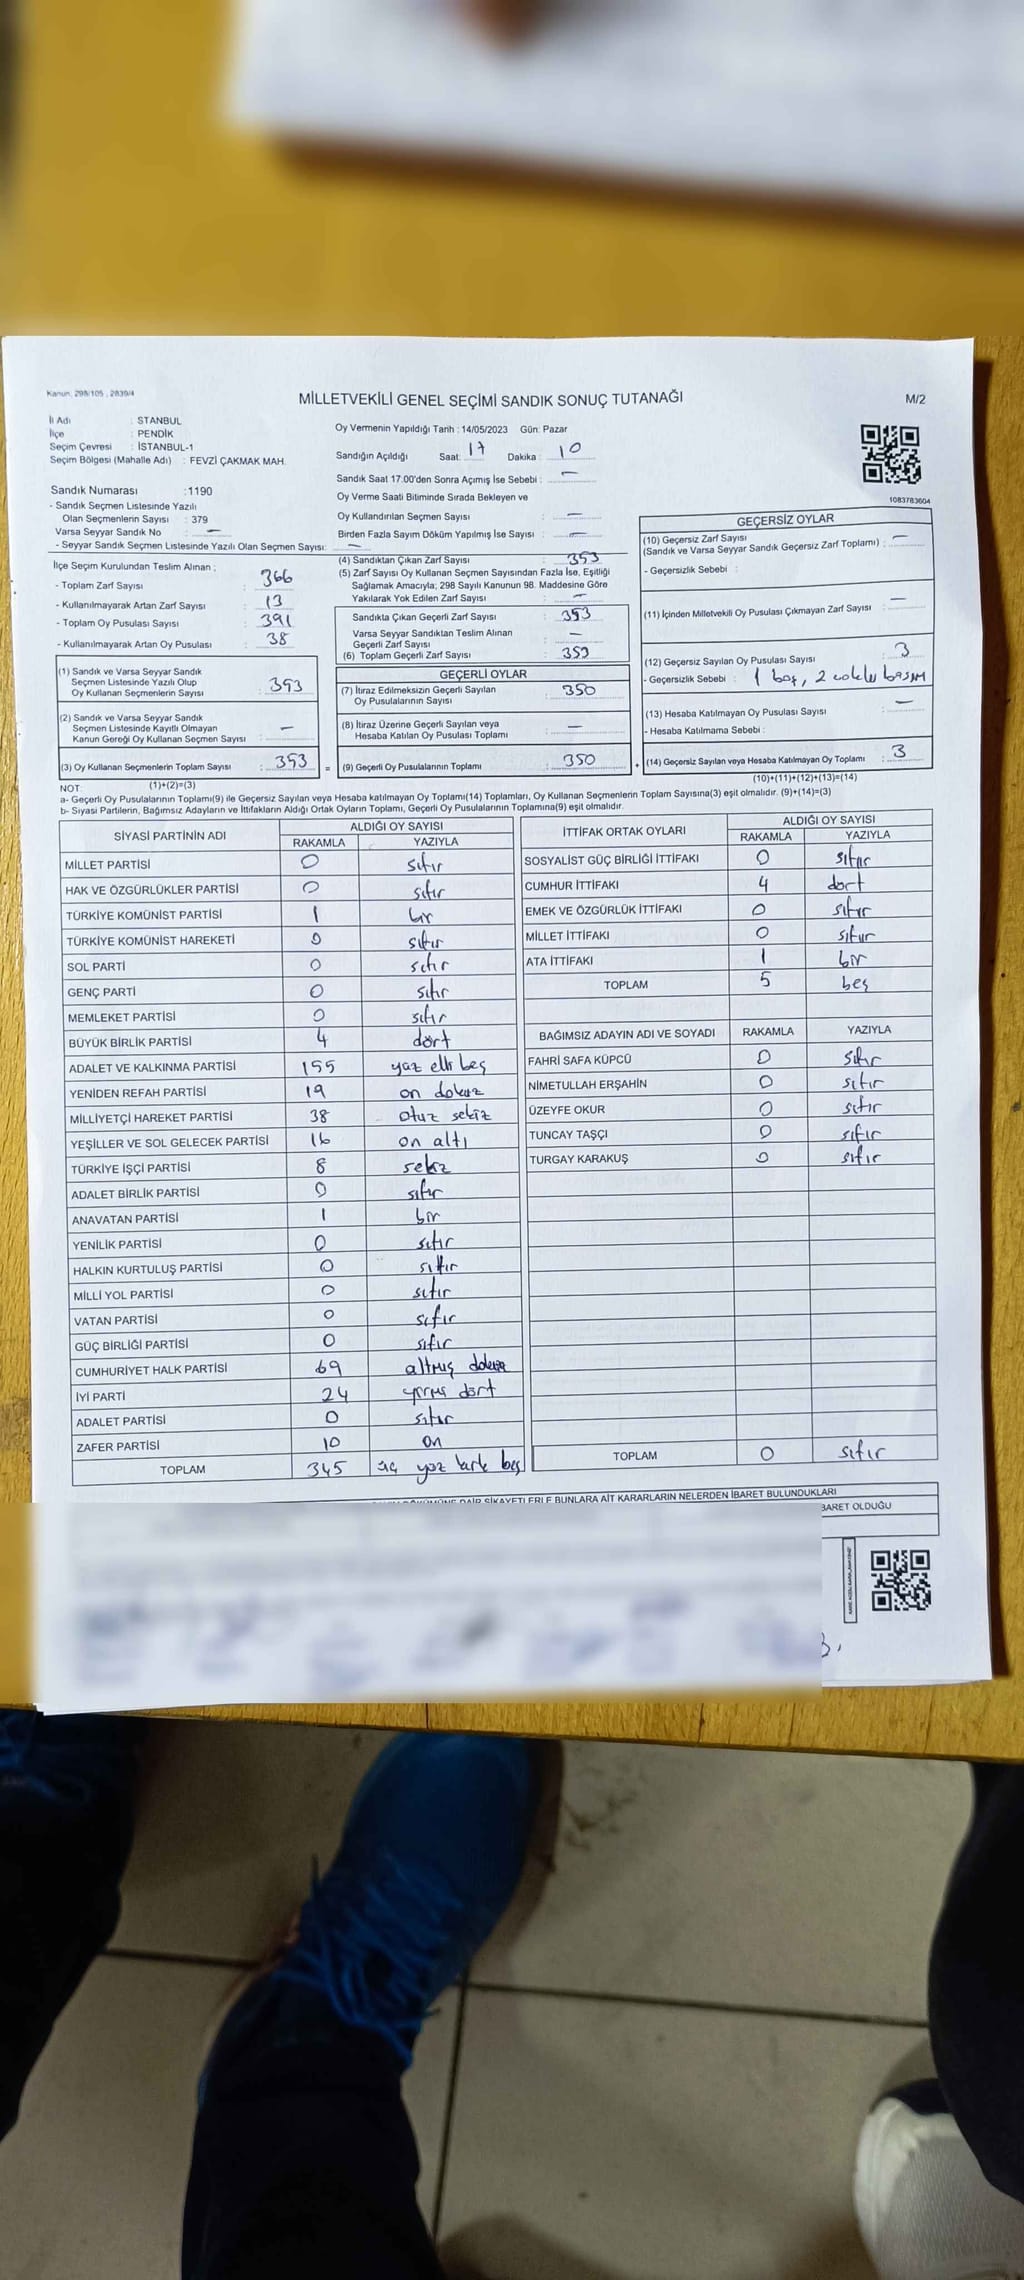 Kanun: 298/105 , 2839/4
MİLLETVEKİLİ GENEL SEÇİMİ SANDIK SONUÇ TUTANAĞI
M/2
İl Adı : STANBUL
İlçe : PENDİK
Seçim Çevresi : İSTANBUL-1
Seçim Bölgesi (Mahalle Adı) : FEVZİ ÇAKMAK MAH.
Oy Vermenin Yapıldığı Tarih : 14/05/2023 Gün: Pazar
Sandığın Açıldığı Saat: 17 Dakika : 10
Sandık Saat 17.00'den Sonra Açımış İse Sebebi : —
Oy Verme Saati Bitiminde Sırada Bekleyen ve
Oy Kullandırılan Seçmen Sayısı : —
Birden Fazla Sayım Döküm Yapılmış İse Sayısı : —
1083783604
Sandık Numarası :1190
- Sandık Seçmen Listesinde Yazılı
Olan Seçmenlerin Sayısı : 379
Varsa Seyyar Sandık No : —
- Seyyar Sandık Seçmen Listesinde Yazılı Olan Seçmen Sayısı: —
İlçe Seçim Kurulundan Teslim Alınan ;
- Toplam Zarf Sayısı : 366
- Kullanılmayarak Artan Zarf Sayısı : 13
- Toplam Oy Pusulası Sayısı : 391
- Kullanılmayarak Artan Oy Pusulası : 38
(1) Sandık ve Varsa Seyyar Sandık
Seçmen Listesinde Yazılı Olup
Oy Kullanan Seçmenlerin Sayısı : 353
(2) Sandık ve Varsa Seyyar Sandık
Seçmen Listesinde Kayıtlı Olmayan
Kanun Gereği Oy Kullanan Seçmen Sayısı : —
(3) Oy Kullanan Seçmenlerin Toplam Sayısı : 353 =
(1)+(2)=(3)
(4) Sandıktan Çıkan Zarf Sayısı : 353
(5) Zarf Sayısı Oy Kullanan Seçmen Sayısından Fazla İse, Eşitliği
Sağlamak Amacıyla; 298 Sayılı Kanunun 98. Maddesine Göre
Yakılarak Yok Edilen Zarf Sayısı : —
Sandıkta Çıkan Geçerli Zarf Sayısı : 353
Varsa Seyyar Sandıktan Teslim Alınan
Geçerli Zarf Sayısı : —
(6) Toplam Geçerli Zarf Sayısı : 353
GEÇERLİ OYLAR
(7) İtiraz Edilmeksizin Geçerli Sayılan
Oy Pusulalarının Sayısı : 350
(8) İtiraz Üzerine Geçerli Sayılan veya
Hesaba Katılan Oy Pusulası Toplamı : —
(9) Geçerli Oy Pusulalarının Toplamı : 350 +
GEÇERSİZ OYLAR
(10) Geçersiz Zarf Sayısı
(Sandık ve Varsa Seyyar Sandık Geçersiz Zarf Toplamı) : —
- Geçersizlik Sebebi :
(11) İçinden Milletvekili Oy Pusulası Çıkmayan Zarf Sayısı : —
(12) Geçersiz Sayılan Oy Pusulası Sayısı : 3
- Geçersizlik Sebebi : 1 boş, 2 basım
(13) Hesaba Katılmayan Oy Pusulası Sayısı : —
- Hesaba Katılmama Sebebi :
(14) Geçersiz Sayılan veya Hesaba Katılmayan Oy Toplamı : 3
(10)+(11)+(12)+(13)=(14)
NOT:
a- Geçerli Oy Pusulalarının Toplamı(9) ile Geçersiz Sayılan veya Hesaba katılmayan Oy Toplamı(14) Toplamları, Oy Kullanan Seçmenlerin Toplam Sayısına(3) eşit olmalıdır. (9)+(14)=(3)
b- Siyasi Partilerin, Bağımsız Adayların ve İttifakların Aldığı Ortak Oyların Toplamı, Geçerli Oy Pusulalarının Toplamına(9) eşit olmalıdır.
SİYASİ PARTİNİN ADI ALDIĞI OY SAYISI
RAKAMLA YAZIYLA
MİLLET PARTİSİ 0 sıfır
HAK VE ÖZGÜRLÜKLER PARTİSİ 0 sıfır
TÜRKİYE KOMÜNİST PARTİSİ 1 bir
TÜRKİYE KOMÜNİST HAREKETİ 0 sıfır
SOL PARTİ 0 sıfır
GENÇ PARTİ 0 sıfır
MEMLEKET PARTİSİ 0 sıfır
BÜYÜK BİRLİK PARTİSİ 4 dört
ADALET VE KALKINMA PARTİSİ 155 yüz elli beş
YENİDEN REFAH PARTİSİ 19 on dokuz
MİLLİYETÇİ HAREKET PARTİSİ 38 otuz sekiz
YEŞİLLER VE SOL GELECEK PARTİSİ 16 on altı
TÜRKİYE İŞÇİ PARTİSİ 8 sekiz
ADALET BİRLİK PARTİSİ 0 sıfır
ANAVATAN PARTİSİ 1 bir
YENİLİK PARTİSİ 0 sıfır
HALKIN KURTULUŞ PARTİSİ 0 sıfır
MİLLİ YOL PARTİSİ 0 sıfır
VATAN PARTİSİ 0 sıfır
GÜÇ BİRLİĞİ PARTİSİ 0 sıfır
CUMHURİYET HALK PARTİSİ 69 altmış dokuz
İYİ PARTİ 24 yirmi dört
ADALET PARTİSİ 0 sıfır
ZAFER PARTİSİ 10 on
TOPLAM 345 üç yüz kırk beş
İTTİFAK ORTAK OYLARI ALDIĞI OY SAYISI
RAKAMLA YAZIYLA
SOSYALİST GÜÇ BİRLİĞİ İTTİFAKI 0 sıfır
CUMHUR İTTİFAKI 4 dört
EMEK VE ÖZGÜRLÜK İTTİFAKI 0 sıfır
MİLLET İTTİFAKI 0 sıfır
ATA İTTİFAKI 1 bir
TOPLAM 5 beş
BAĞIMSIZ ADAYIN ADI VE SOYADI RAKAMLA YAZIYLA
FAHRİ SAFA KÜPCÜ 0 sıfır
NİMETULLAH ERŞAHİN 0 sıfır
ÜZEYFE OKUR 0 sıfır
TUNCAY TAŞÇI 0 sıfır
TURGAY KARAKUŞ 0 sıfır
TOPLAM 0 sıfır
DAİR ŞİKAYETLERLE BUNLARA AİT KARARLARIN NELERDEN İBARET BULUNDUKLARI
BARET OLDUĞU